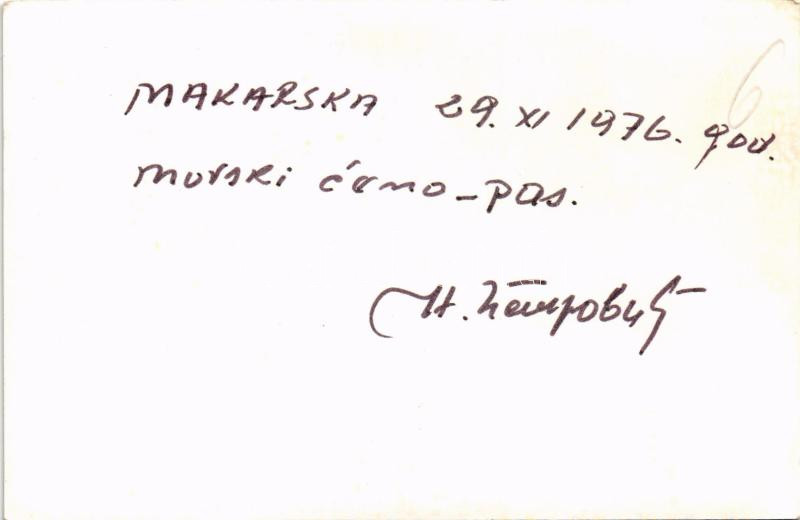 MAKARSKA 29. XI 1976. god.
morski ćamo - pas.
Н. Петровић
6